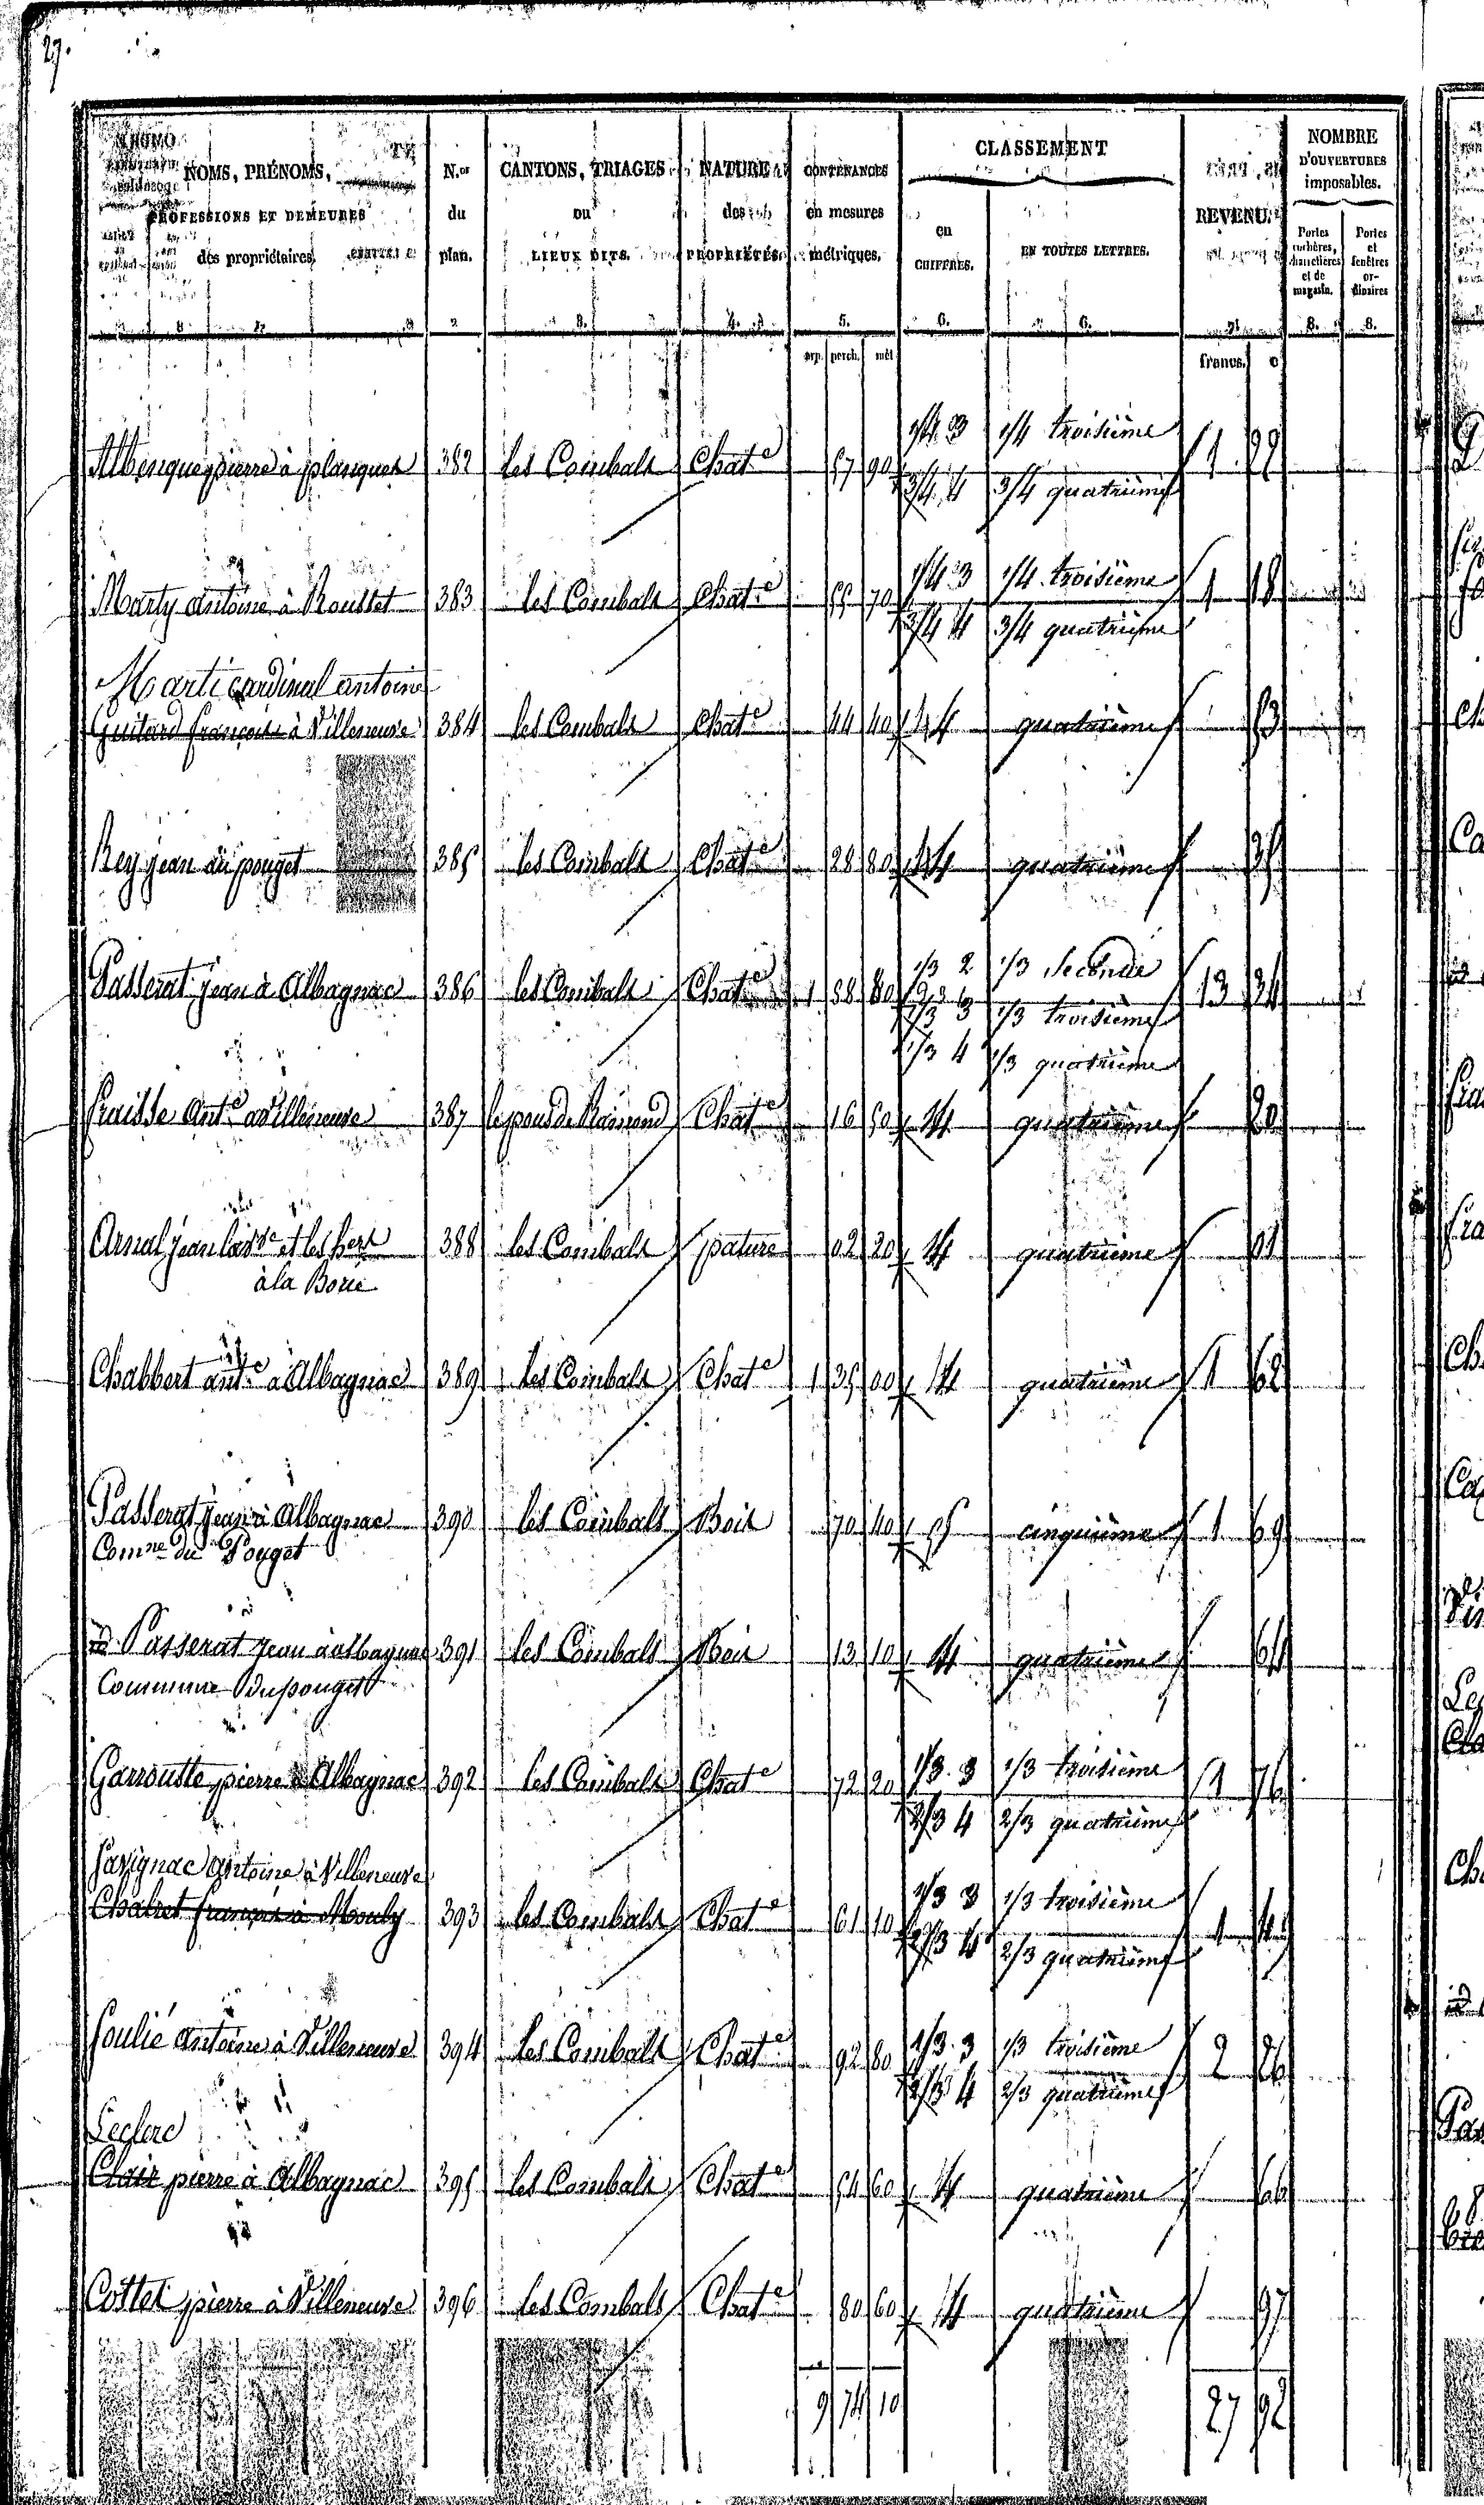 27.
NOMS, PRÉNOMS, PROFESSIONS ET DEMEURES des propriétaires. | N.os du plan. | CANTONS, TRIAGES ou LIEUX DITS. | NATURE des PROPRIÉTÉS. | CONTENANCES en mesures métriques. | CLASSEMENT en CHIFFRES. | EN TOUTES LETTRES. | REVENU. | NOMBRE D'OUVERTURES imposables.
Portes cochères, charretières et de magasin. | Portes et fenêtres ordinaires
2 | 3. | 4. | 5. | 6. | 6. | 8. | 8.
arp. | perch. | mèt | francs. | c
1/4 3 | 1/4 troisième
Albenque pierre à | 382 | les Combals | Chate | 57 | 90 | 3/4 4 | 3/4 quatrième | 1
1/4 3 | 1/4 troisième
Marty antoine à Rousset | 383 | les Combals | Chate | 55 | 70 | 3/4 4 | 3/4 quatrième | 1 | 18
Marti cardinal antoine
Guitard françois à Villeneuve | 384 | les Combals | Chate | 44 | 40 | 4 | quatrième | 53
Rey jean au pouget | 385 | les Combals | Chate | 28 | 80 | 4 | quatrième | 35
1/3 2 | 1/3 Seconde
Passerat jean à Albagnac | 386 | les Combals | Chate | 1 | 58 | 80 | 1/3 3 | 1/3 troisième | 13 | 34
1/3 4 | 1/3 quatrième
fraisse Ante à Villeneuve | 387 | Chate | 16 | 50 | 4 | quatrième | 20
Arnal jean et les hers | 388 | les Combals | pature | 02 | 20 | 4 | quatrième | 01
à la Borie
Chabbert ante à Albagnac | 389 | les Combals | Chate | 1 | 35 | 00 | 4 | quatrième | 1 | 62
Passerat jean à Albagnac | 390 | les Combals | Bois | 70 | 40 | 5 | cinquième | 1 | 69
Comne du Pouget
id Passerat jean à albagnac | 391 | les Combals | Bois | 13 | 10 | 4 | quatrième | 64
Commune du pouget
1/3 3 | 1/3 troisième
Garrouste pierre à Albagnac | 392 | les Combals | Chate | 72 | 20 | 2/3 4 | 2/3 quatrième | 1 | 76
Savignac antoine à Villeneuve
1/3 3 | 1/3 troisième
Chalret françois à Mouly | 393 | les Combals | Chate | 61 | 10 | 2/3 4 | 2/3 quatrième | 1
1/3 3 | 1/3 troisième
Soulié antoine à Villeneuve | 394 | Les Combals | Chate | 92 | 80 | 2/3 4 | 2/3 quatrième | 2 | 26
Leclerc
Clair pierre à Albagnac | 395 | les Combals | Chate | 54 | 60 | 4 | quatrième | 66
Cottet pierre à Villeneuve | 396 | les Combals | Chate | 80 | 60 | 4 | quatrième | 97
9 | 74 | 10 | 27 | 92